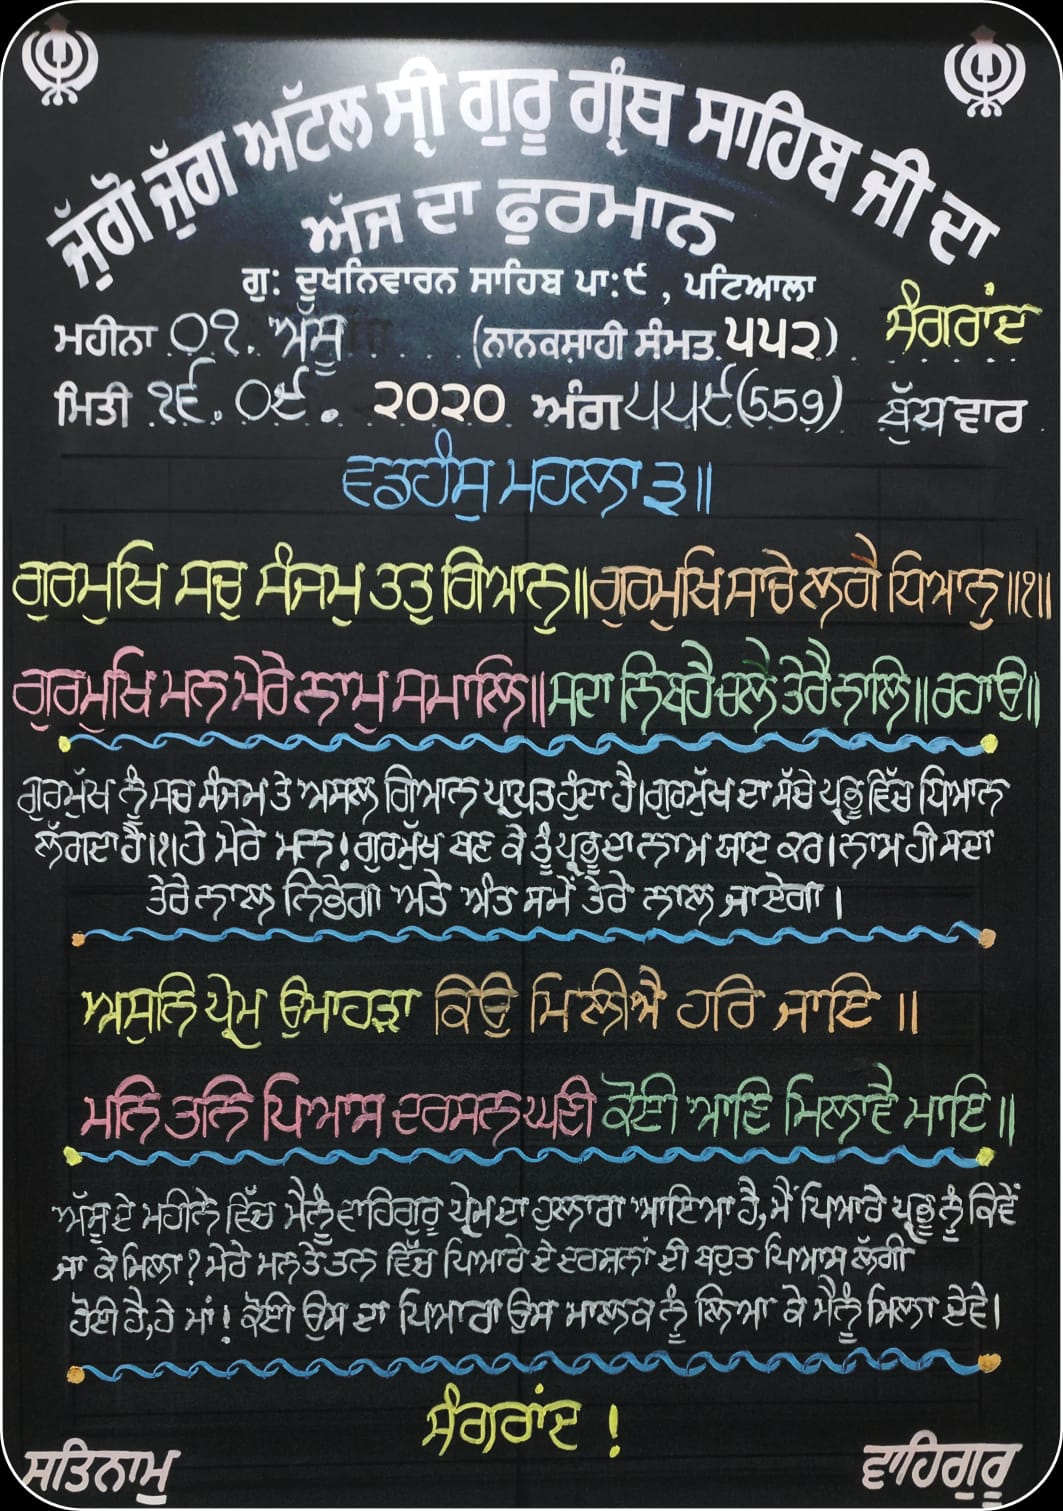 ਜੁੱਗੋ ਜੁੱਗ ਅਟੱਲ ਸ੍ਰੀ ਗੁਰੂ ਗ੍ਰੰਥ ਸਾਹਿਬ ਜੀ ਦਾ
ਅੱਜ ਦਾ ਫੁਰਮਾਨ
ਗੁ: ਦੂਖਨਿਵਾਰਨ ਸਾਹਿਬ ਪਾ:੯, ਪਟਿਆਲਾ
ਸੰਗਰਾਂਦ
ਮਹੀਨਾ ੦੧. ਅੱਸੂ (ਨਾਨਕਸ਼ਾਹੀ ਸੰਮਤ. ੫੫੨)
ਮਿਤੀ ੧੬.੦੯. ੨੦੨੦ ਅੰਗ ੫੫੯(559) ਬੁੱਧਵਾਰ
ਵਡਹੰਸੁ ਮਹਲਾ ੩॥
ਗੁਰਮੁਖਿ ਸਚੁ ਸੰਜਮੁ ਤਤੁ ਗਿਆਨੁ॥ਗੁਰਮੁਖਿ ਸਾਚੇ ਲਗੈ ਧਿਆਨੁ॥੧॥
ਗੁਰਮੁਖਿ ਮਨ ਮੇਰੇ ਨਾਮੁ ਸਮਾਲਿ॥ਸਦਾ ਨਿਬਹੈ ਚਲੈ ਤੇਰੈ ਨਾਲਿ॥ਰਹਾਉ॥
ਗੁਰਮੁੱਖ ਨੂੰ ਸਚ ਸੰਜਮ ਤੇ ਅਸਲ ਗਿਆਨ ਪ੍ਰਾਪਤ ਹੁੰਦਾ ਹੈ।ਗੁਰਮੁੱਖ ਦਾ ਸੱਚੇ ਪ੍ਰਭੂ ਵਿੱਚ ਧਿਆਨ
ਲੱਗਦਾ ਹੈ।੧।ਹੇ ਮੇਰੇ ਮਨ!ਗੁਰਮੁੱਖ ਬਣ ਕੇ ਤੂੰ ਪ੍ਰਭੂ ਦਾ ਨਾਮ ਯਾਦ ਕਰ।ਨਾਮ ਹੀ ਸਦਾ
ਤੇਰੇ ਨਾਲ ਨਿਭੇਗਾ ਅਤੇ ਅੰਤ ਸਮੇਂ ਤੇਰੇ ਨਾਲ ਜਾਏਗਾ।
ਅਸੁਨਿ ਪ੍ਰੇਮ ਉਮਾਹੜਾ ਕਿਉ ਮਿਲੀਐ ਹਰਿ ਜਾਇ॥
ਮਨਿ ਤਨਿ ਪਿਆਸ ਦਰਸਨ ਘਣੀ ਕੋਈ ਆਣਿ ਮਿਲਾਵੈ ਮਾਇ॥
ਅੱਸੂ ਦੇ ਮਹੀਨੇ ਵਿੱਚ ਮੈਨੂੰ ਵਾਹਿਗੁਰੂ ਪ੍ਰੇਮ ਦਾ ਹੁਲਾਰਾ ਆਇਆ ਹੈ,ਮੈਂ ਪਿਆਰੇ ਪ੍ਰਭੂ ਨੂੰ ਕਿਵੇਂ
ਜਾ ਕੇ ਮਿਲਾ? ਮੇਰੇ ਮਨ ਤੇ ਤਨ ਵਿੱਚ ਪਿਆਰੇ ਦੇ ਦਰਸ਼ਨਾਂ ਦੀ ਬਹੁਤ ਪਿਆਸ ਲੱਗੀ
ਹੋਈ ਹੈ,ਹੇ ਮਾਂ! ਕੋਈ ਉਸ ਦਾ ਪਿਆਰਾ ਉਸ ਮਾਲਕ ਨੂੰ ਲਿਆ ਕੇ ਮੈਨੂੰ ਮਿਲਾ ਦੇਵੇ।
ਸੰਗਰਾਂਦ !
ਸਤਿਨਾਮੁ ਵਾਹਿਗੁਰੂ